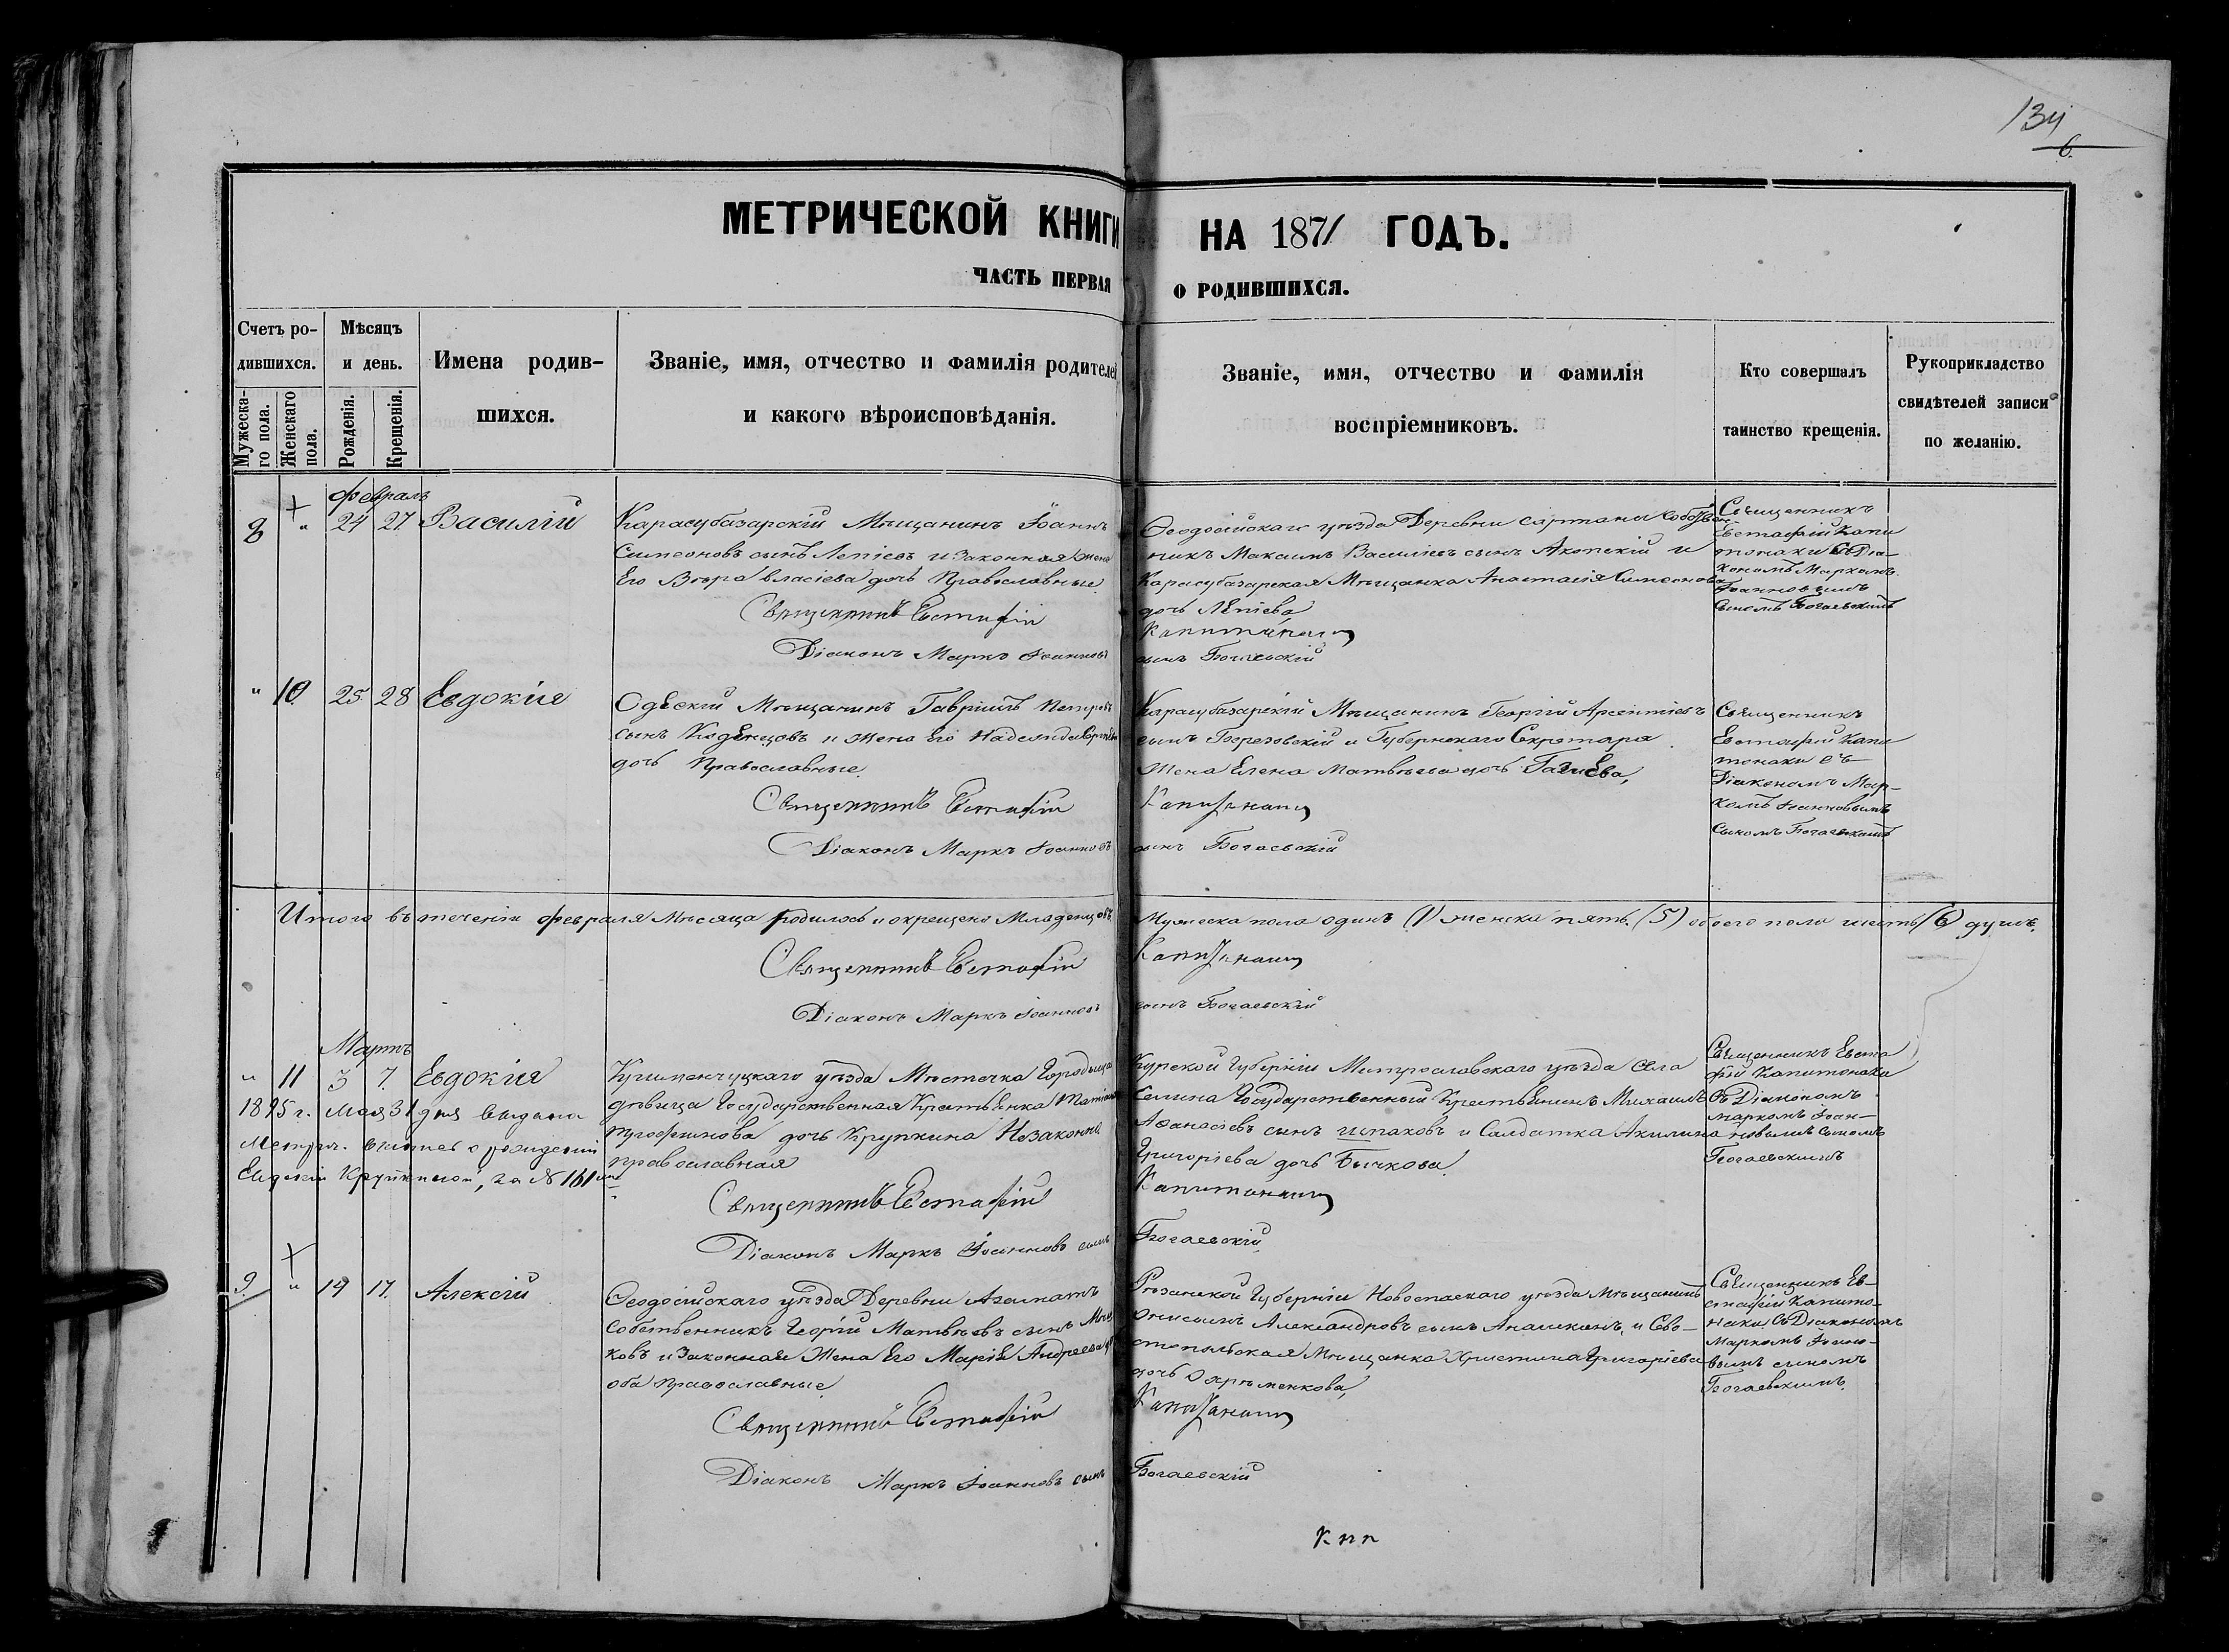 134
6.
МЕТРИЧЕСКОЙ КНИГИ НА 1871 ГОДЪ.
ЧАСТЬ ПЕРВАЯ О РОДИВШИХСЯ.
Счетъ ро-
дившихся.
Мужеска-
го пола.
Женскаго
пола.
Мѣсяцъ
и день.
Рожденія.
Крещенія.
Имена родив-
шихся.
Званіе, имя, отчество и фамилія родителей
и какого вѣроисповѣданія.
Званіе, имя, отчество и фамилія
воспріемниковъ.
Кто совершалъ
таинство крещенія.
Рукоприкладство
свидѣтелей записи
по желанію.
Февраль
8 " 24 27 Василій
Карасубазарскій Мѣщанинъ Іоаннъ
Симеоновъ сынъ Лепіевъ и законная жена
Его Вѣра Власіева дочь Православные
Ѳеодосійскаго уѣзда Деревни
Максимъ Василіевъ сынъ и
Карасубазарская Мѣщанка Анастасія Симеонова
дочь Лепіева
Священникъ
Евстафій Капи
тонаки съ Діа-
кономъ Маркомъ
Іоанновымъ
сыномъ Богаевскимъ
Священникъ Евстафій Капитонаки
Діаконъ Маркъ Іоанновъ сынъ Богаевскій
" 10 25 28 Евдокія
Одескій Мѣщанинъ Гавріилъ Петровъ
сынъ и жена Его Надежда
дочь Православные.
Карасубазарскій Мѣщанинъ Георгій Арсентіевъ
сынъ Березовскій и Губернскаго Секретаря
жена Елена Матвѣева дочь
Священникъ
Евстафій Капи
тонаки съ
Діакономъ Мар-
комъ Іоанновымъ
сыномъ Богаевскимъ
Священникъ Евстафій Капитонаки
Діаконъ Маркъ Іоанновъ сынъ Богаевскій
Итого въ теченіи февраля Мѣсяца родилось и окрещено Младенцовъ Мужеска пола одинъ (1) женска пять (5) обоего пола шесть (6) душъ.
Священникъ Евстафій Капитонаки
Діаконъ Маркъ Іоанновъ сынъ Богаевскій
Мартъ
" 11 3 7. Евдокія
уѣзда Мѣстечка Городища
дѣвица Государственная Крестьянка
дочь Крупкина Незаконна
православная
Курской Губерніи уѣзда Села
Государственный Крестьянинъ Михаилъ
Аѳанасіевъ сынъ Шпаковъ и Солдатка Акилина
Григоріева дочь Бычкова.
Священникъ Евста
фій Капитонаки
съ Діакономъ
Маркомъ Іоан-
новымъ сыномъ
Богаевскимъ
1895 г. Мая 31 дня выдана
Метрич. выпись о рожденіи
Евдокіи Крупкиной, за № 161
Священникъ Евстафій Капитонаки
Діаконъ Маркъ Іоанновъ сынъ Богаевскій
9. " 14 17. Алексій
Ѳеодосійскаго уѣзда Деревни
собственникъ Георгій Матвѣевъ сынъ
ковъ и законная жена Его Марія Андреева
оба православные.
Рязанской Губерніи уѣзда Мѣщанинъ
Александровъ сынъ и Сево-
стопольская Мѣщанка Христина Григоріева
дочь
Священникъ Ев-
стафій Капито-
наки съ Діакономъ
Маркомъ Іоанно-
вымъ сыномъ
Богаевскимъ.
Священникъ Евстафій Капитонаки
Діаконъ Маркъ Іоанновъ сынъ Богаевскій